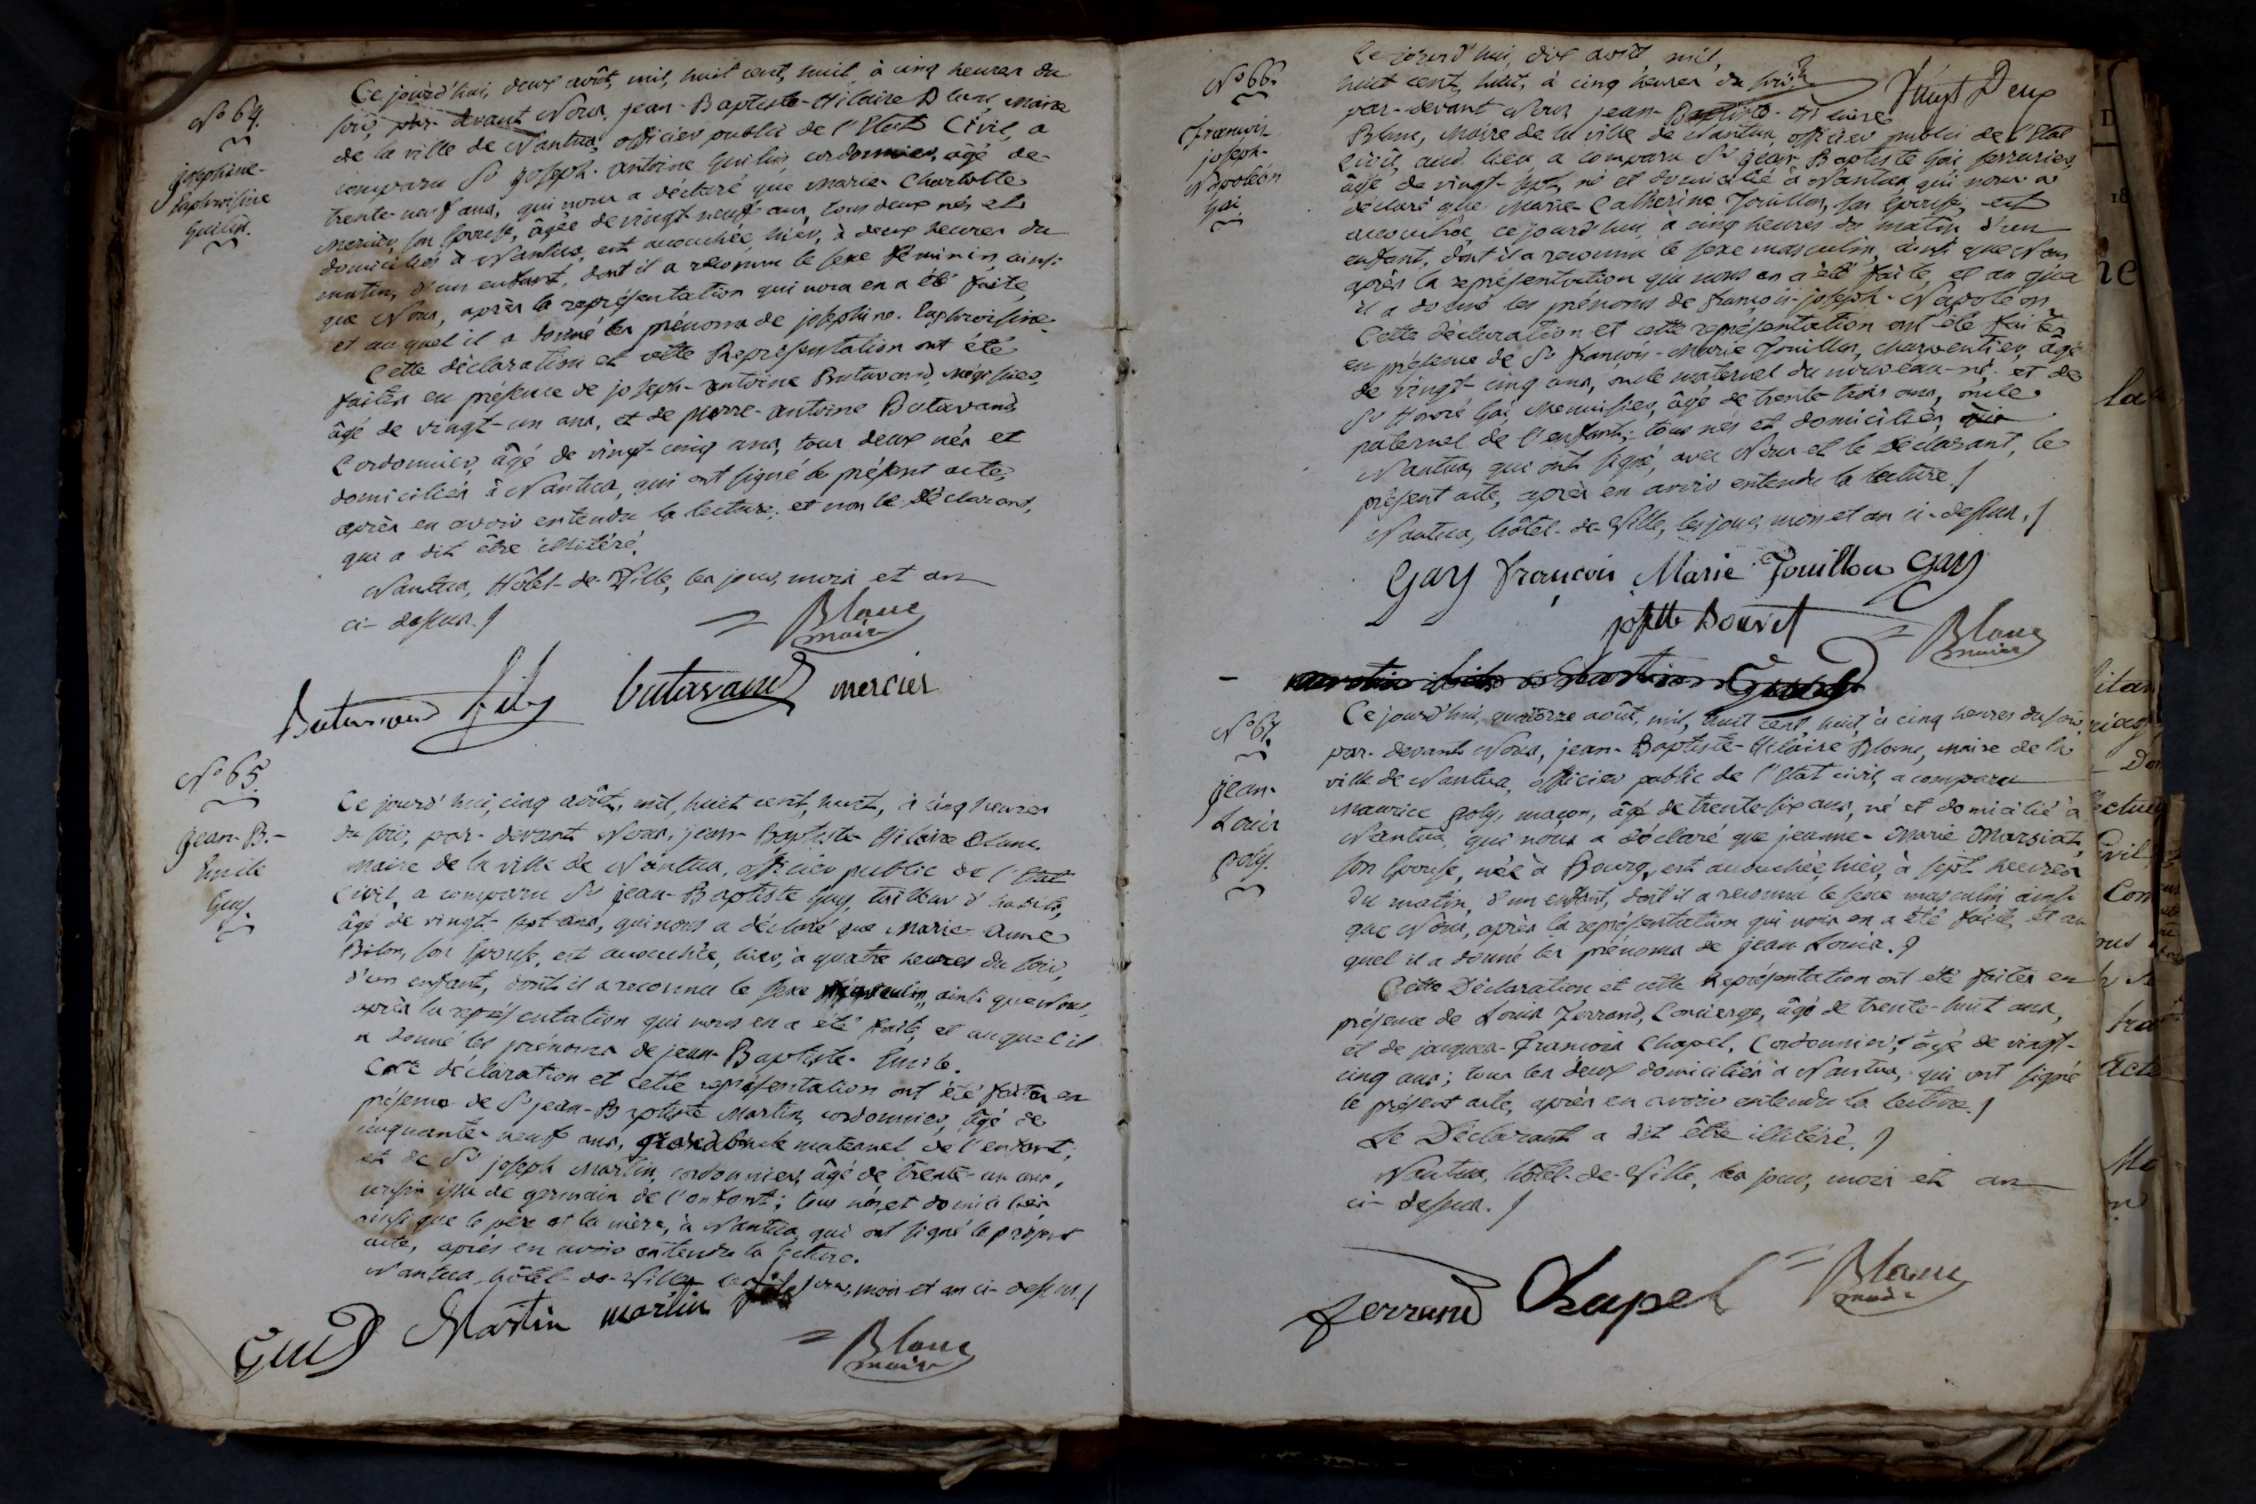 N.º 64.
Josephine-
Euphroisine
Guilin.
Ce jourd'hui, deux août, mil, huit cent, huit, à cinq heures du
soir, par-devant Nous, jean-Baptiste-Hilaire Blanc, Maire
de la ville de Nantua, officier public de l'Etat Civil, a
comparu Sr joseph-antoine Guilin, cordonnier, âgé de
trente-neuf ans, qui nous a déclaré que Marie-Charlotte
Mercier, son Epouse, âgée de vingt neuf ans, tous deux nés et
domiciliés à Nantua, est accouchée, hier, à deux heures du
matin, d'un enfant, dont il a reconnu le sexe féminin, ainsi
que Nous, après la représentation qui nous en a été faite,
et auquel il a donné les prénoms de josephine-Euphroisine.
Cette déclaration et cette Représentation ont été
faites en présence de joseph-antoine Butavand, Mégissier,
âgé de vingt-un ans, et de pierre-antoine Butavand,
Cordonnier, âgé de vingt-cinq ans, tous deux nés et
domiciliés à Nantua, qui ont signé le présent acte,
après en avoir entendu la lecture; et non le Déclarant,
qui a dit être illitéré.
Nantua, Hôtel-de-Ville, les jour, mois et an
ci-dessus./
Blanc
maire
Butavand fils butavand mercier
N.º 65.
Jean-B.-
Emile
Guy.
Ce jourd'hui, cinq août, mil, huit cent, huit, à cinq heures
du soir, par-devant Nous, jean-Baptiste-Hilaire Blanc,
Maire de la ville de Nantua, officier public de l'Etat
Civil, a comparu Sr jean-Baptiste Guy, tailleur d'habits,
âgé de vingt-sept ans, qui nous a déclaré que Marie-Anne
son Epouse, est accouchée, hier, à quatre heures du soir,
d'un enfant, dont il a reconnu le sexe masculin, ainsi que Nous,
après la représentation qui nous en a été faite, et auquel il
a donné les prénoms de jean-Baptiste-Emile.
Cette déclaration et cette représentation ont été faites en
présence de Sr jean-Baptiste Martin, cordonnier, âgé de
cinquante-neuf ans, grand oncle maternel de l'enfant;
et de Sr joseph Martin, cordonnier, âgé de trente-un ans,
cousin issu de germain de l'enfant; tous nés et domiciliés
ainsi que le père et la mère, à Nantua, qui ont signé le présent
acte, après en avoir entendu la lecture.
Nantua, hôtel-de-Ville, les jour, mois et an ci-dessus./
Guy Martin martin fils
Blanc
maire
Vingt Deux
N.º 66.
François
joseph-
Napoléon
Gai
Ce jourd'hui, dix août, mil,
huit cent, huit, à cinq heures du soir,
par-devant Nous, jean-Baptiste-Hilaire
Blanc, Maire de la ville de Nantua, officier public de l'Etat
Civil, aud. lieu a comparu Sr jean-Baptiste Gai, serrurier,
âgé de vingt-sept, né et domicilié à Nantua, qui nous a
déclaré que Marie-Catherine Jouillon, son Epouse, est
accouchée, ce jourd'hui, à cinq heures du matin, d'un
enfant, dont il a reconnu le sexe masculin, ainsi que Nous
après la représentation qui nous en a été faite, et au quel
il a donné les prénoms de françois-joseph-Napoléon.
Cette déclaration et cette représentation ont été faites
en présence de Sr françois-Marie Jouillon, charpentier, âgé
de vingt-cinq ans, oncle maternel du nouveau-né, et de
Sr Honoré Gai, Menuisier, âgé de trente-trois ans, oncle
paternel de l'enfant; tous nés et domiciliés à
Nantua, qui ont signé, avec Nous et le Déclarant, le
présent acte, après en avoir entendu la lecture./
Nantua, hôtel-de-Ville, les jour, mois et an ci-dessus./
Gay françois Marie Jouillon Gay
josette Bouvet
Blanc
maire
N.º 67.
Jean-
Louis
Poty.
Ce jourd'hui, quatorze août, mil, huit cent, huit, à cinq heures du soir,
par-devant Nous, jean-Baptiste-Hilaire Blanc, maire de la
ville de Nantua, officier public de l'Etat civil, a comparu
Maurice Poty, maçon, âgé de trente-six ans, né et domicilié à
Nantua, qui nous a déclaré que jeanne-Marie Marsiat,
son Epouse, née à Bourg, est accouchée, hier, à sept heures
du matin, d'un enfant, dont il a reconnu le sexe masculin, ainsi
que Nous, après la représentation qui nous en a été faite, et au
quel il a donné les prénoms de jean-Louis./
Cette Déclaration et cette Représentation ont été faites en
présence de Louis Ferrand, Concierge, âgé de trente-huit ans,
et de jacques-François Chapel, Cordonnier, âgé de vingt-
cinq ans; tous les deux domiciliés à Nantua, qui ont signé
le présent acte, après en avoir entendu la lecture./
Le Déclarant a dit être illitéré./
Nantua, hôtel-de-Ville, les jour, mois et an
ci-dessus./
ferrand Chapel
Blanc
maire